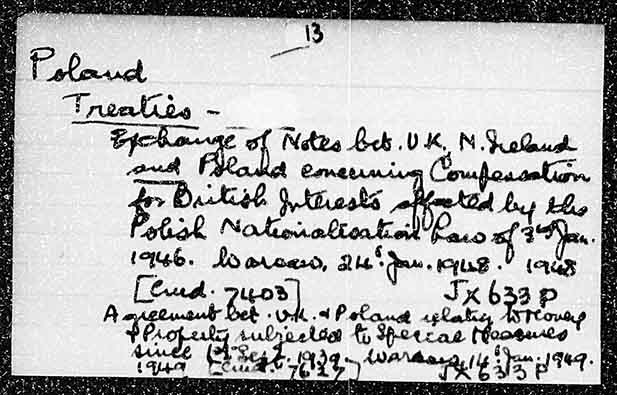 13
Poland
Treaties -
Exchange of Notes bet. U.K, N. Ireland
and Poland concerning Compensation
for British Interests affected by the
Polish Nationalisation Law of 3rd Jan.
1946. Warsaw, 24th Jan. 1948. 1948
[Cmd. 7403] JX 633 P
Agreement bet. U.K. & Poland relating to Money
& Property subjected to Special Measures
since 1st Sept. 1939. Warsaw, 14th Jan. 1949.
1949 [Cmd. 7627] JX 633 P